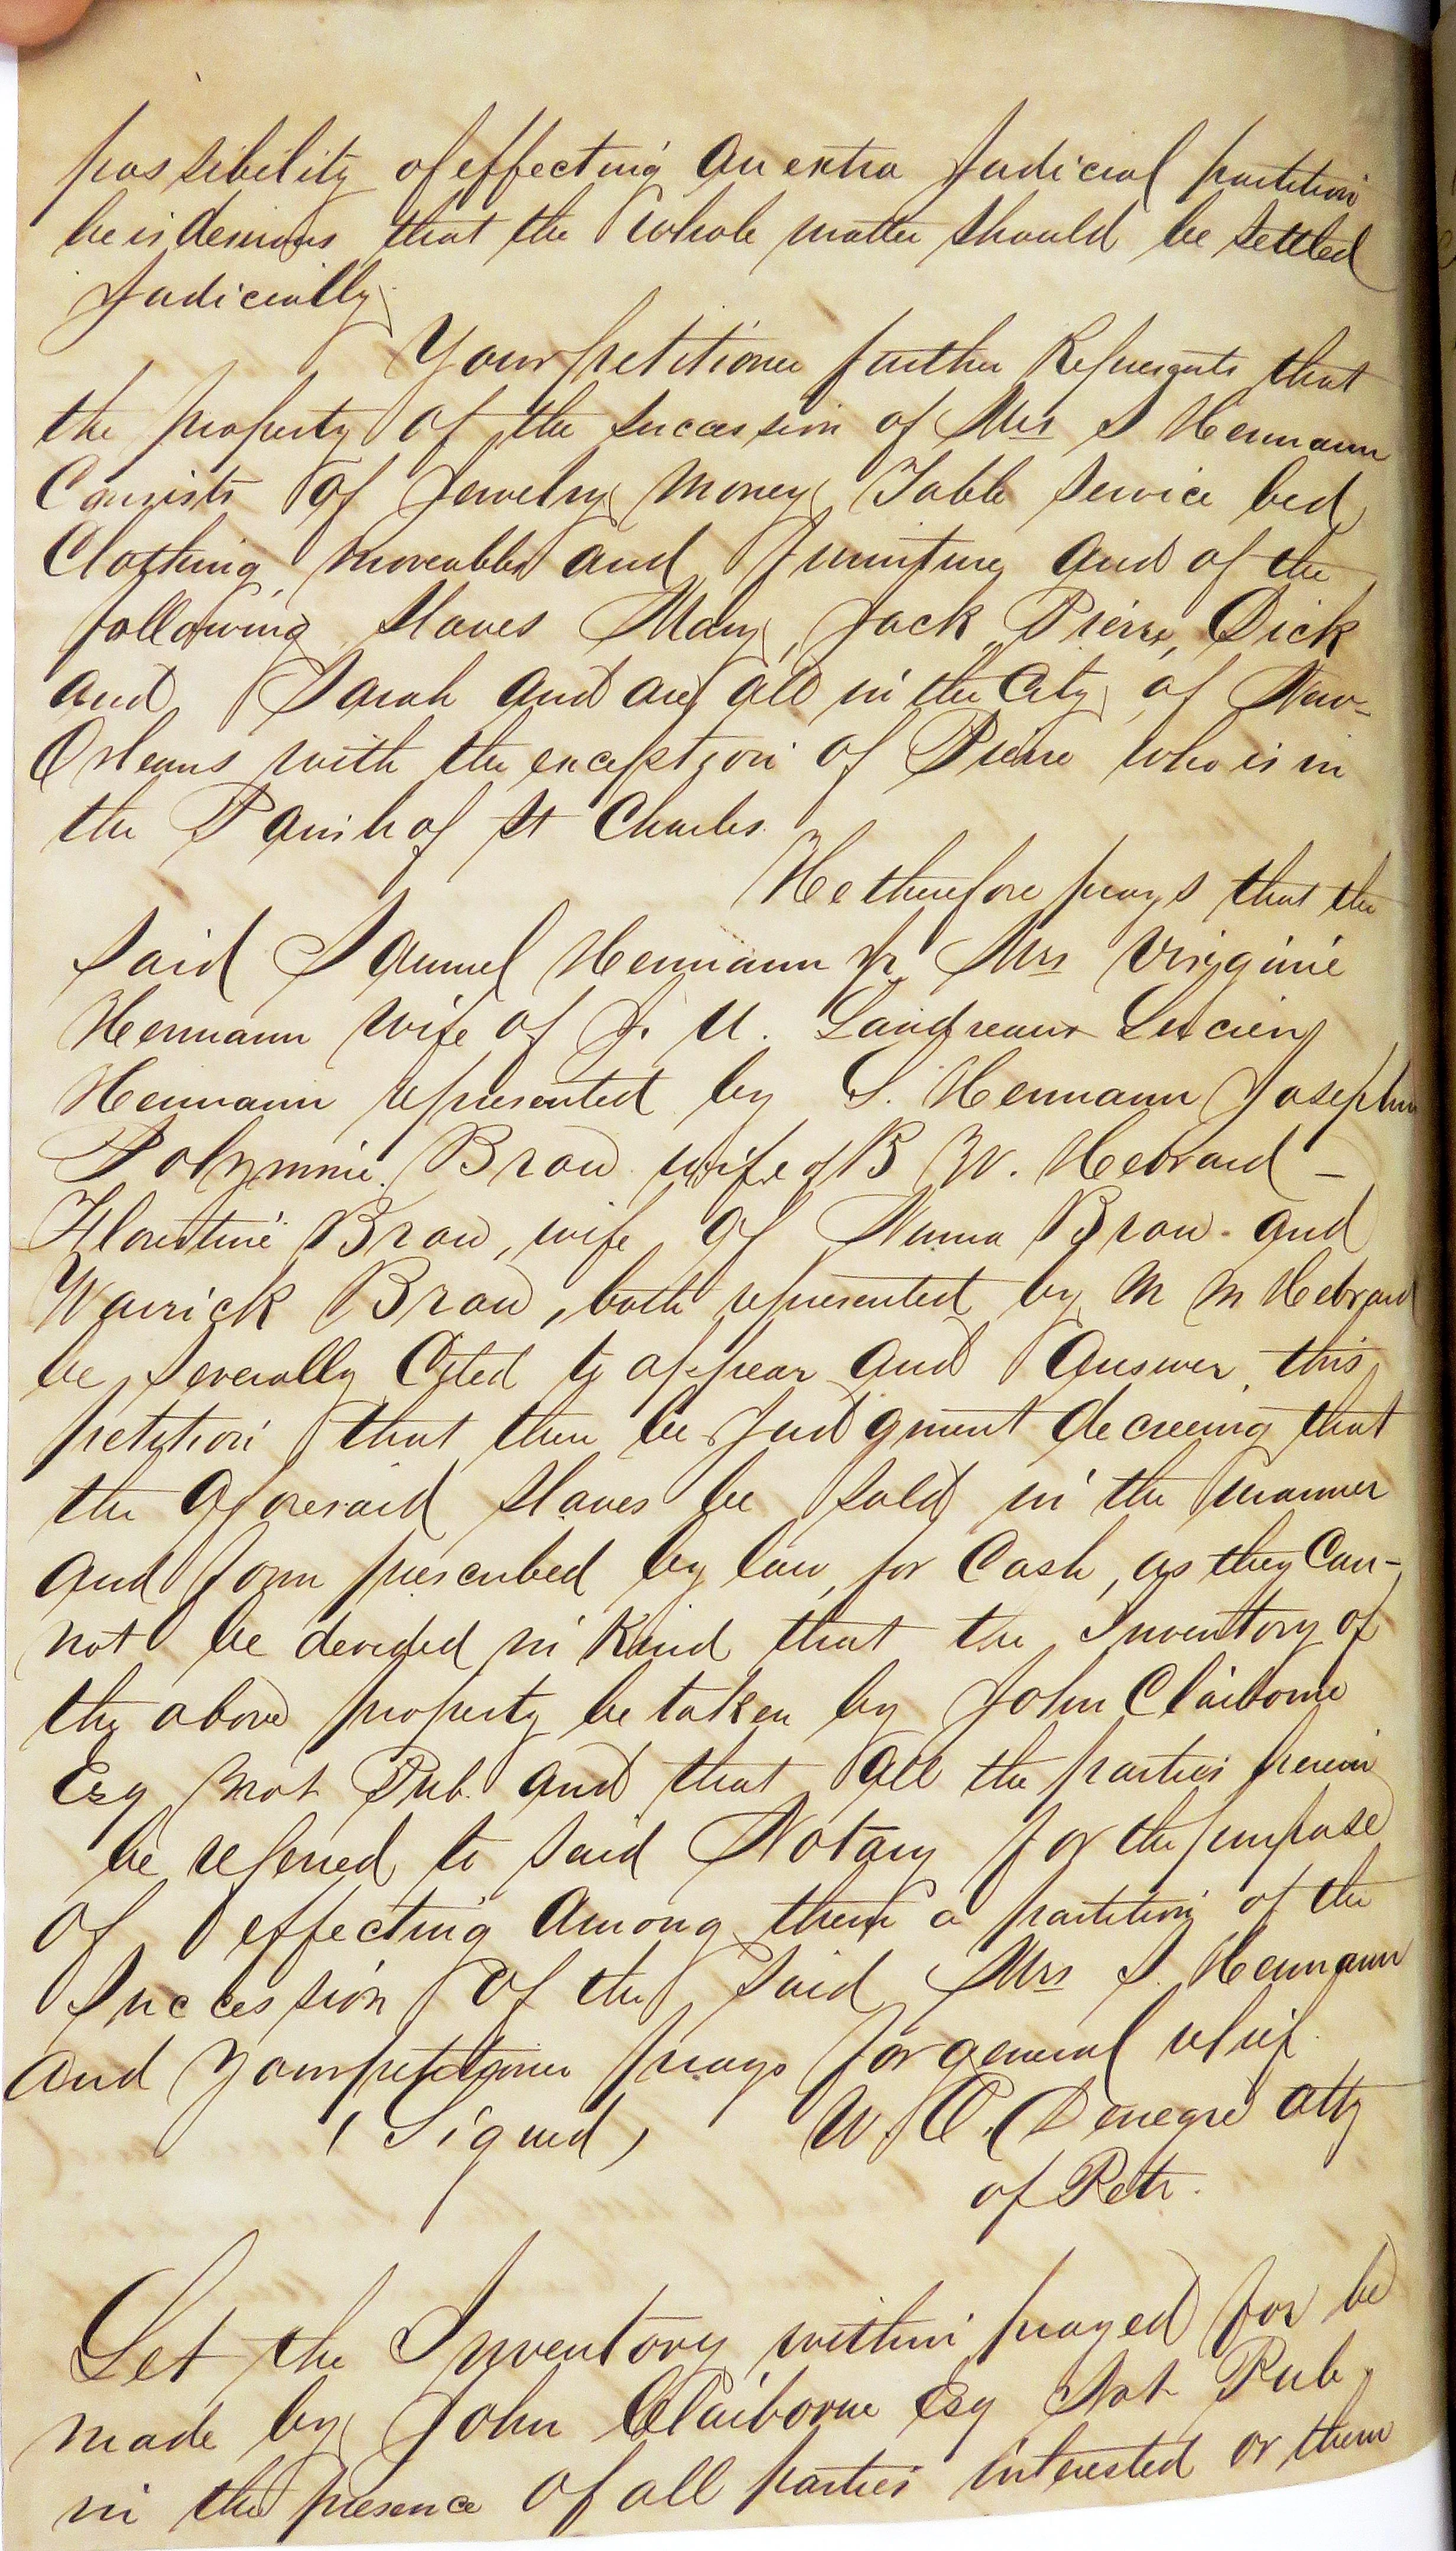 possibility of effecting an extra Judicial partition
he is desirous that the whole matter should be settled
Judicially.
Your petitioner further Represents that
the property of the succession of Mrs S Hermann
Consists of Jewelry Money Table Service bed
Clothing, moveables and furniture and of the
following Slaves Mary, Jack, Pierre, Dick
and Sarah and are all in the City of New-
Orleans with the exception of Pierre who is in
the Parish of St Charles.
He therefore prays that the
Said Samuel Hermann Jr Mrs Virginie
Hermann wife of J. U. Landreaux Lucien
Hermann represented by S. Hermann Josephine
Polymnie Brou wife of B W. Hebrard –
Florentine Brou, wife of Numa Brou - and
Warrick Brou, both represented by M M Hebrard
be Severally Cited to appear and Answer this
petition that there be Judgment decreeing that
the aforesaid Slaves be Sold in the manner
and form prescribed by law, for Cash, as they Can-
not be devided in Kind that the Inventory of
the above property be taken by John Claiborne
Esq Not Pub. and that all the parties herein
be referred to Said Notary for the purpose
of effecting among them a partition of the
Succession of the Said Mrs S. Hermann
and Your petitioner prays for general relief.
(Signed) W. O. Denegre atty
of Petr.
Let the Inventory within prayed for be
made by John Claiborne Esq Not Pub,
in the presence of all parties interested or them